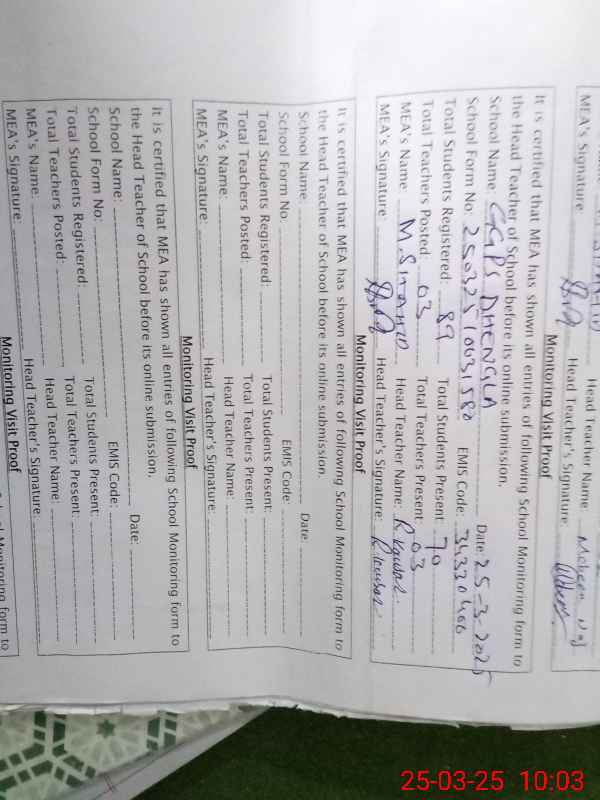 Head Teacher Name
MEA's Signature Head Teacher's Signature:
Monitoring Visit Proof
It is certified that MEA has shown all entries of following School Monitoring form to
the Head Teacher of School before its online submission.
School Name: GGPS DHENGLA Date: 25-3-2025
School Form No: 2503251003,580 EMIS Code: 34320466
Total Students Registered: 89 Total Students Present: 70
Total Teachers Posted: 03 Total Teachers Present: 03
MEA's Name Head Teacher Name: R. kousar.
MEA's Signature: Head Teacher's Signature: R. kousar.
Monitoring Visit Proof
It is certified that MEA has shown all entries of following School Monitoring form to
the Head Teacher of School before its online submission.
School Name Date:
School Form No. EMIS Code:
Total Students Registered: Total Students Present:
Total Teachers Posted: Total Teachers Present:
MEA's Name: Head Teacher Name:
MEA's Signature: Head Teacher's Signature:
Monitoring Visit Proof
It is certified that MEA has shown all entries of following School Monitoring form to
the Head Teacher of School before its online submission.
School Name: Date:
School Form No: EMIS Code:
Total Students Registered: Total Students Present:
Total Teachers Posted: Total Teachers Present:
MEA's Name: Head Teacher Name:
MEA's Signature: Head Teacher's Signature:
Monitoring Visit Proof
School Monitoring form to
25-03-25 10:03